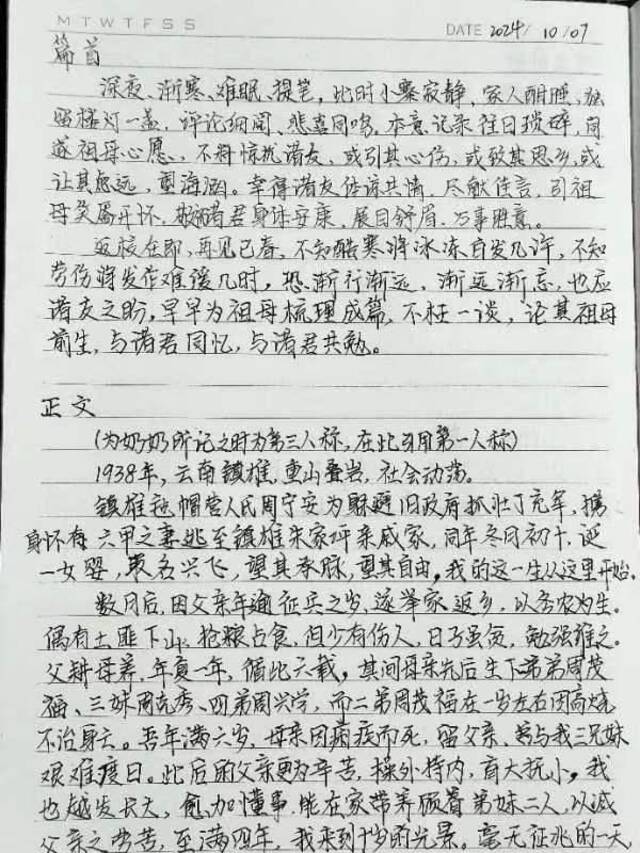 MTWTFSS
DATE 2024/10/07
篇首
深夜、渐寒、难眠、提笔，此时小寨寂静、家人酣睡、独
留楼灯一盏，评论细阅、悲喜同鸣。本意记录往日琐碎，圆
逐祖母心愿，不料惊扰诸友，或引其心伤，或致其思乡，或
让其忽远，望海涵。幸得诸友体谅共情，尽献佳言，引祖
母笑厴开怀，诸君身体安康，展目舒眉，万事胜意。
返校在即，再见已春，不知酷寒将冰冻白发几许，不知
劳伤将发作难诿几时，恐渐行渐远，渐远渐忘，也应
诸友之盼，早早为祖母梳理成篇，不枉一谈，论其祖母
前生，与诸君同忆，与诸君共勉。
正文
(为奶奶所记之时为第三人称，在此引用第一人称)
1938年，云南镇雄，重山叠岩，社会动荡。
镇雄毡帽营人氏周宁安为躲避旧政府抓壮丁充军，携
身怀有六甲之妻逃至镇雄朱家坪亲戚家，同年冬月初十，诞
一女婴，取名兴飞，望其承脉，望其自由，我的这一生从这里开始。
数月后，因父亲年逾征兵之岁，遂举家返乡，以务农为生。
偶有土匪下山，抢粮占食，但少有伤人，日子虽贫，勉强维之。
父耕母养，年复一年，循此六载，其间母亲先后生下弟弟周茂
福、三妹周克秀、四弟周兴学，而二弟周茂福在一岁左右因高烧
不治身亡。吾年满六岁，母亲因病疾而死，留父亲、与我三兄妹
艰难度日。此后的父亲更为辛苦，操外持内，育大抚小，我
也越发长大，愈加懂事，能在家带养顾着弟妹二人，以减
父亲之劳苦，至满四年，我来到十岁的光景。毫无征兆的一天